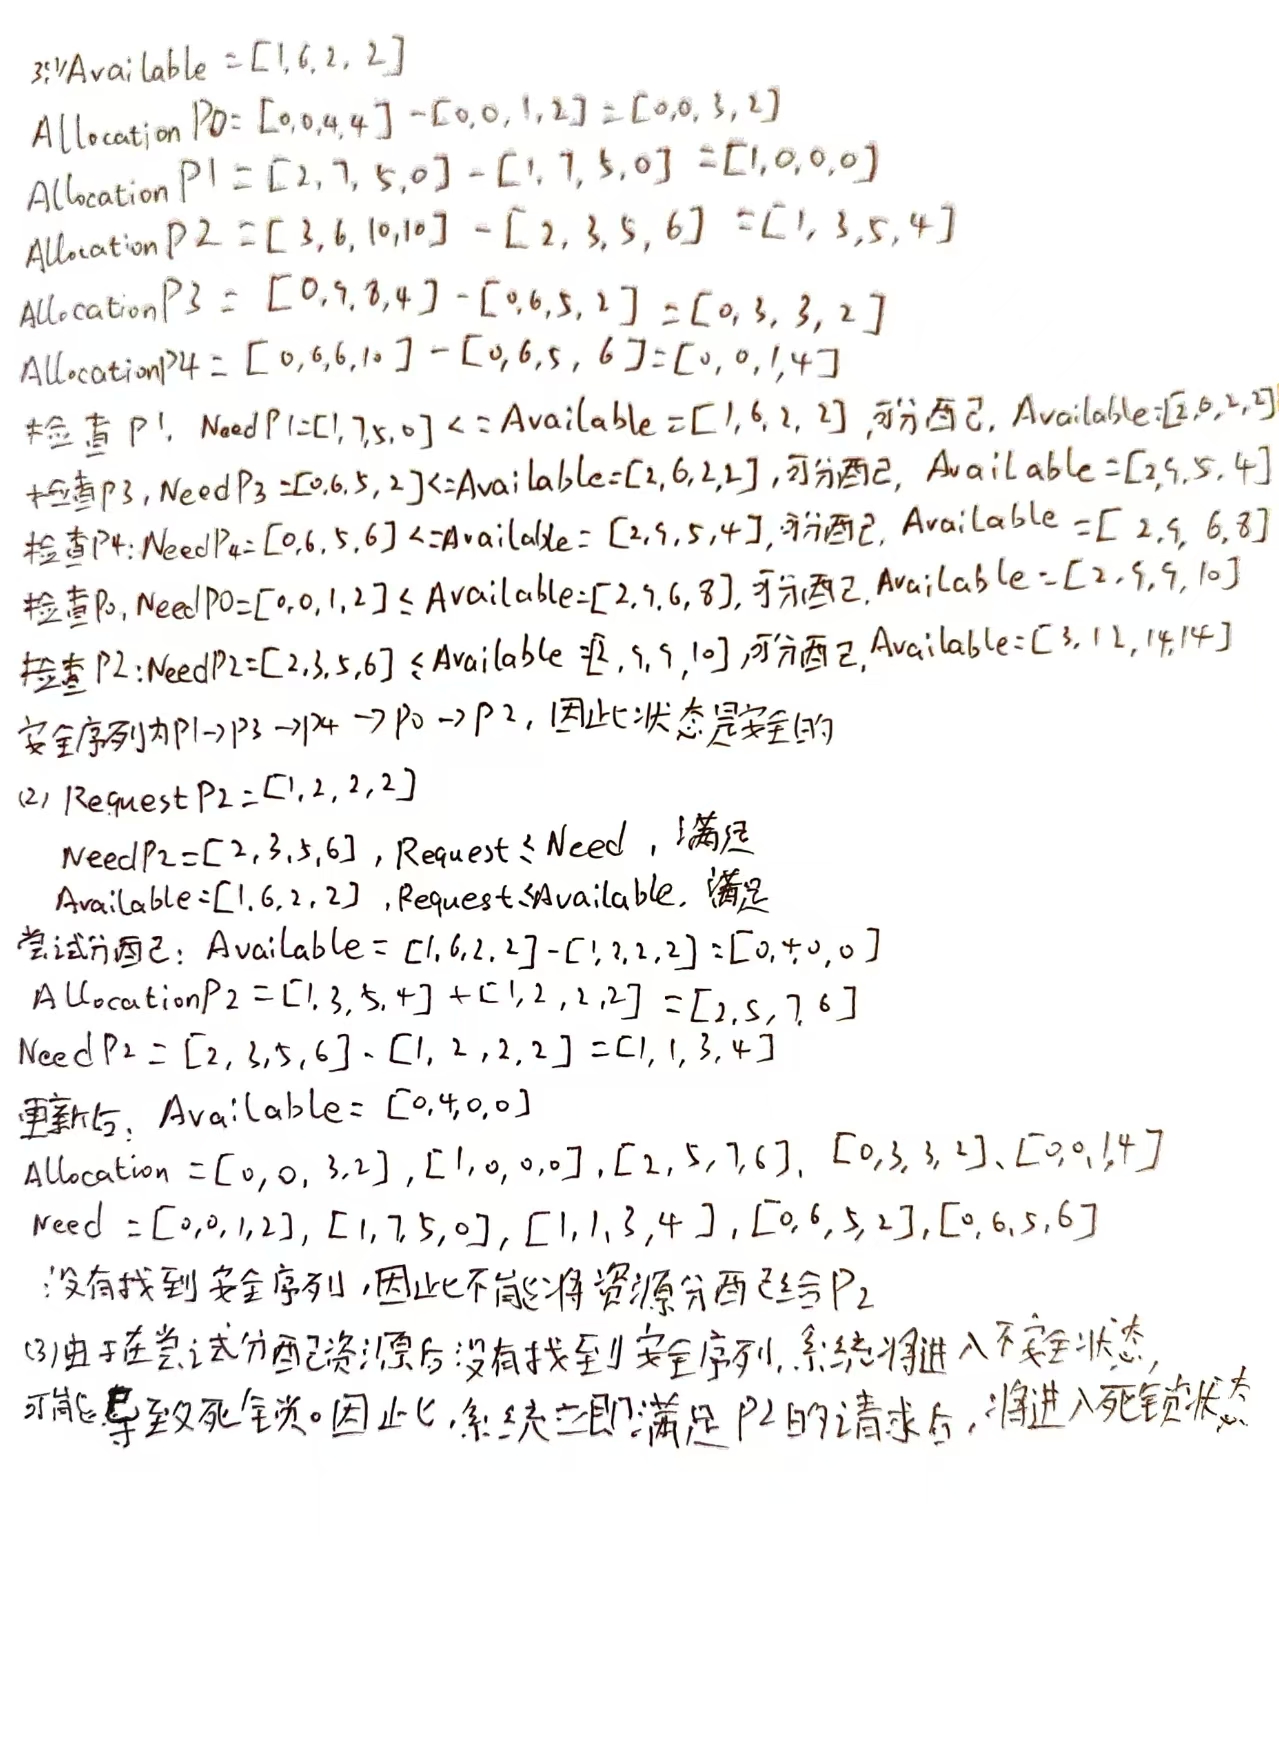 3.(1)Available = [1,6,2,2]
Allocation P0 = [0,0,4,4] - [0,0,1,2] = [0,0,3,2]
Allocation P1 = [2,7,5,0] - [1,7,5,0] = [1,0,0,0]
Allocation P2 = [3,6,10,10] - [2,3,5,6] = [1,3,5,4]
Allocation P3 = [0,9,8,4] - [0,6,5,2] = [0,3,3,2]
Allocation P4 = [0,6,6,10] - [0,6,5,6] = [0,0,1,4]
检查P1, NeedP1=[1,7,5,0] <= Available = [1,6,2,2],可分配, Available=[2,6,2,2]
检查P3, NeedP3=[0,6,5,2]<=Available=[2,6,2,2],可分配, Available=[2,9,5,4]
检查P4:NeedP4=[0,6,5,6]<=Available=[2,9,5,4],可分配, Available=[2,9,6,8]
检查P0, NeedP0=[0,0,1,2]≤Available=[2,9,6,8],可分配,Available=[2,9,9,10]
检查P2:NeedP2=[2,3,5,6]≤Available=[2,9,9,10],可分配,Available=[3,12,14,14]
安全序列为P1→P3→P4→P0→P2,因此状态是安全的
(2) RequestP2=[1,2,2,2]
NeedP2=[2,3,5,6],Request≤Need,满足
Available=[1,6,2,2],Request≤Available,满足
尝试分配:Available=[1,6,2,2]-[1,2,2,2]=[0,4,0,0]
AllocationP2=[1,3,5,4]+[1,2,2,2]=[2,5,7,6]
NeedP2=[2,3,5,6]-[1,2,2,2]=[1,1,3,4]
更新后:Available=[0,4,0,0]
Allocation=[0,0,3,2],[1,0,0,0],[2,5,7,6],[0,3,3,2]、[0,0,1,4]
Need=[0,0,1,2],[1,7,5,0],[1,1,3,4],[0,6,5,2],[0,6,5,6]
没有找到安全序列,因此不能将资源分配给P2
(3)由于在尝试分配资源后没有找到安全序列,系统将进入不安全状态,
可能导致死锁。因此,系统立即满足P2的请求后,将进入死锁状态